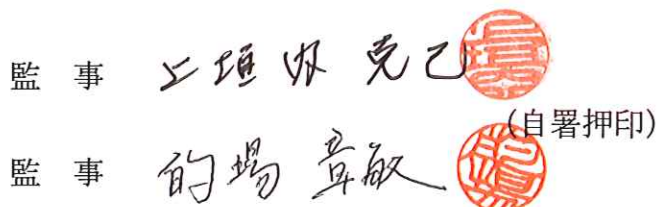 監事 上垣内 克己
(自署押印)
監事 的場 章敏